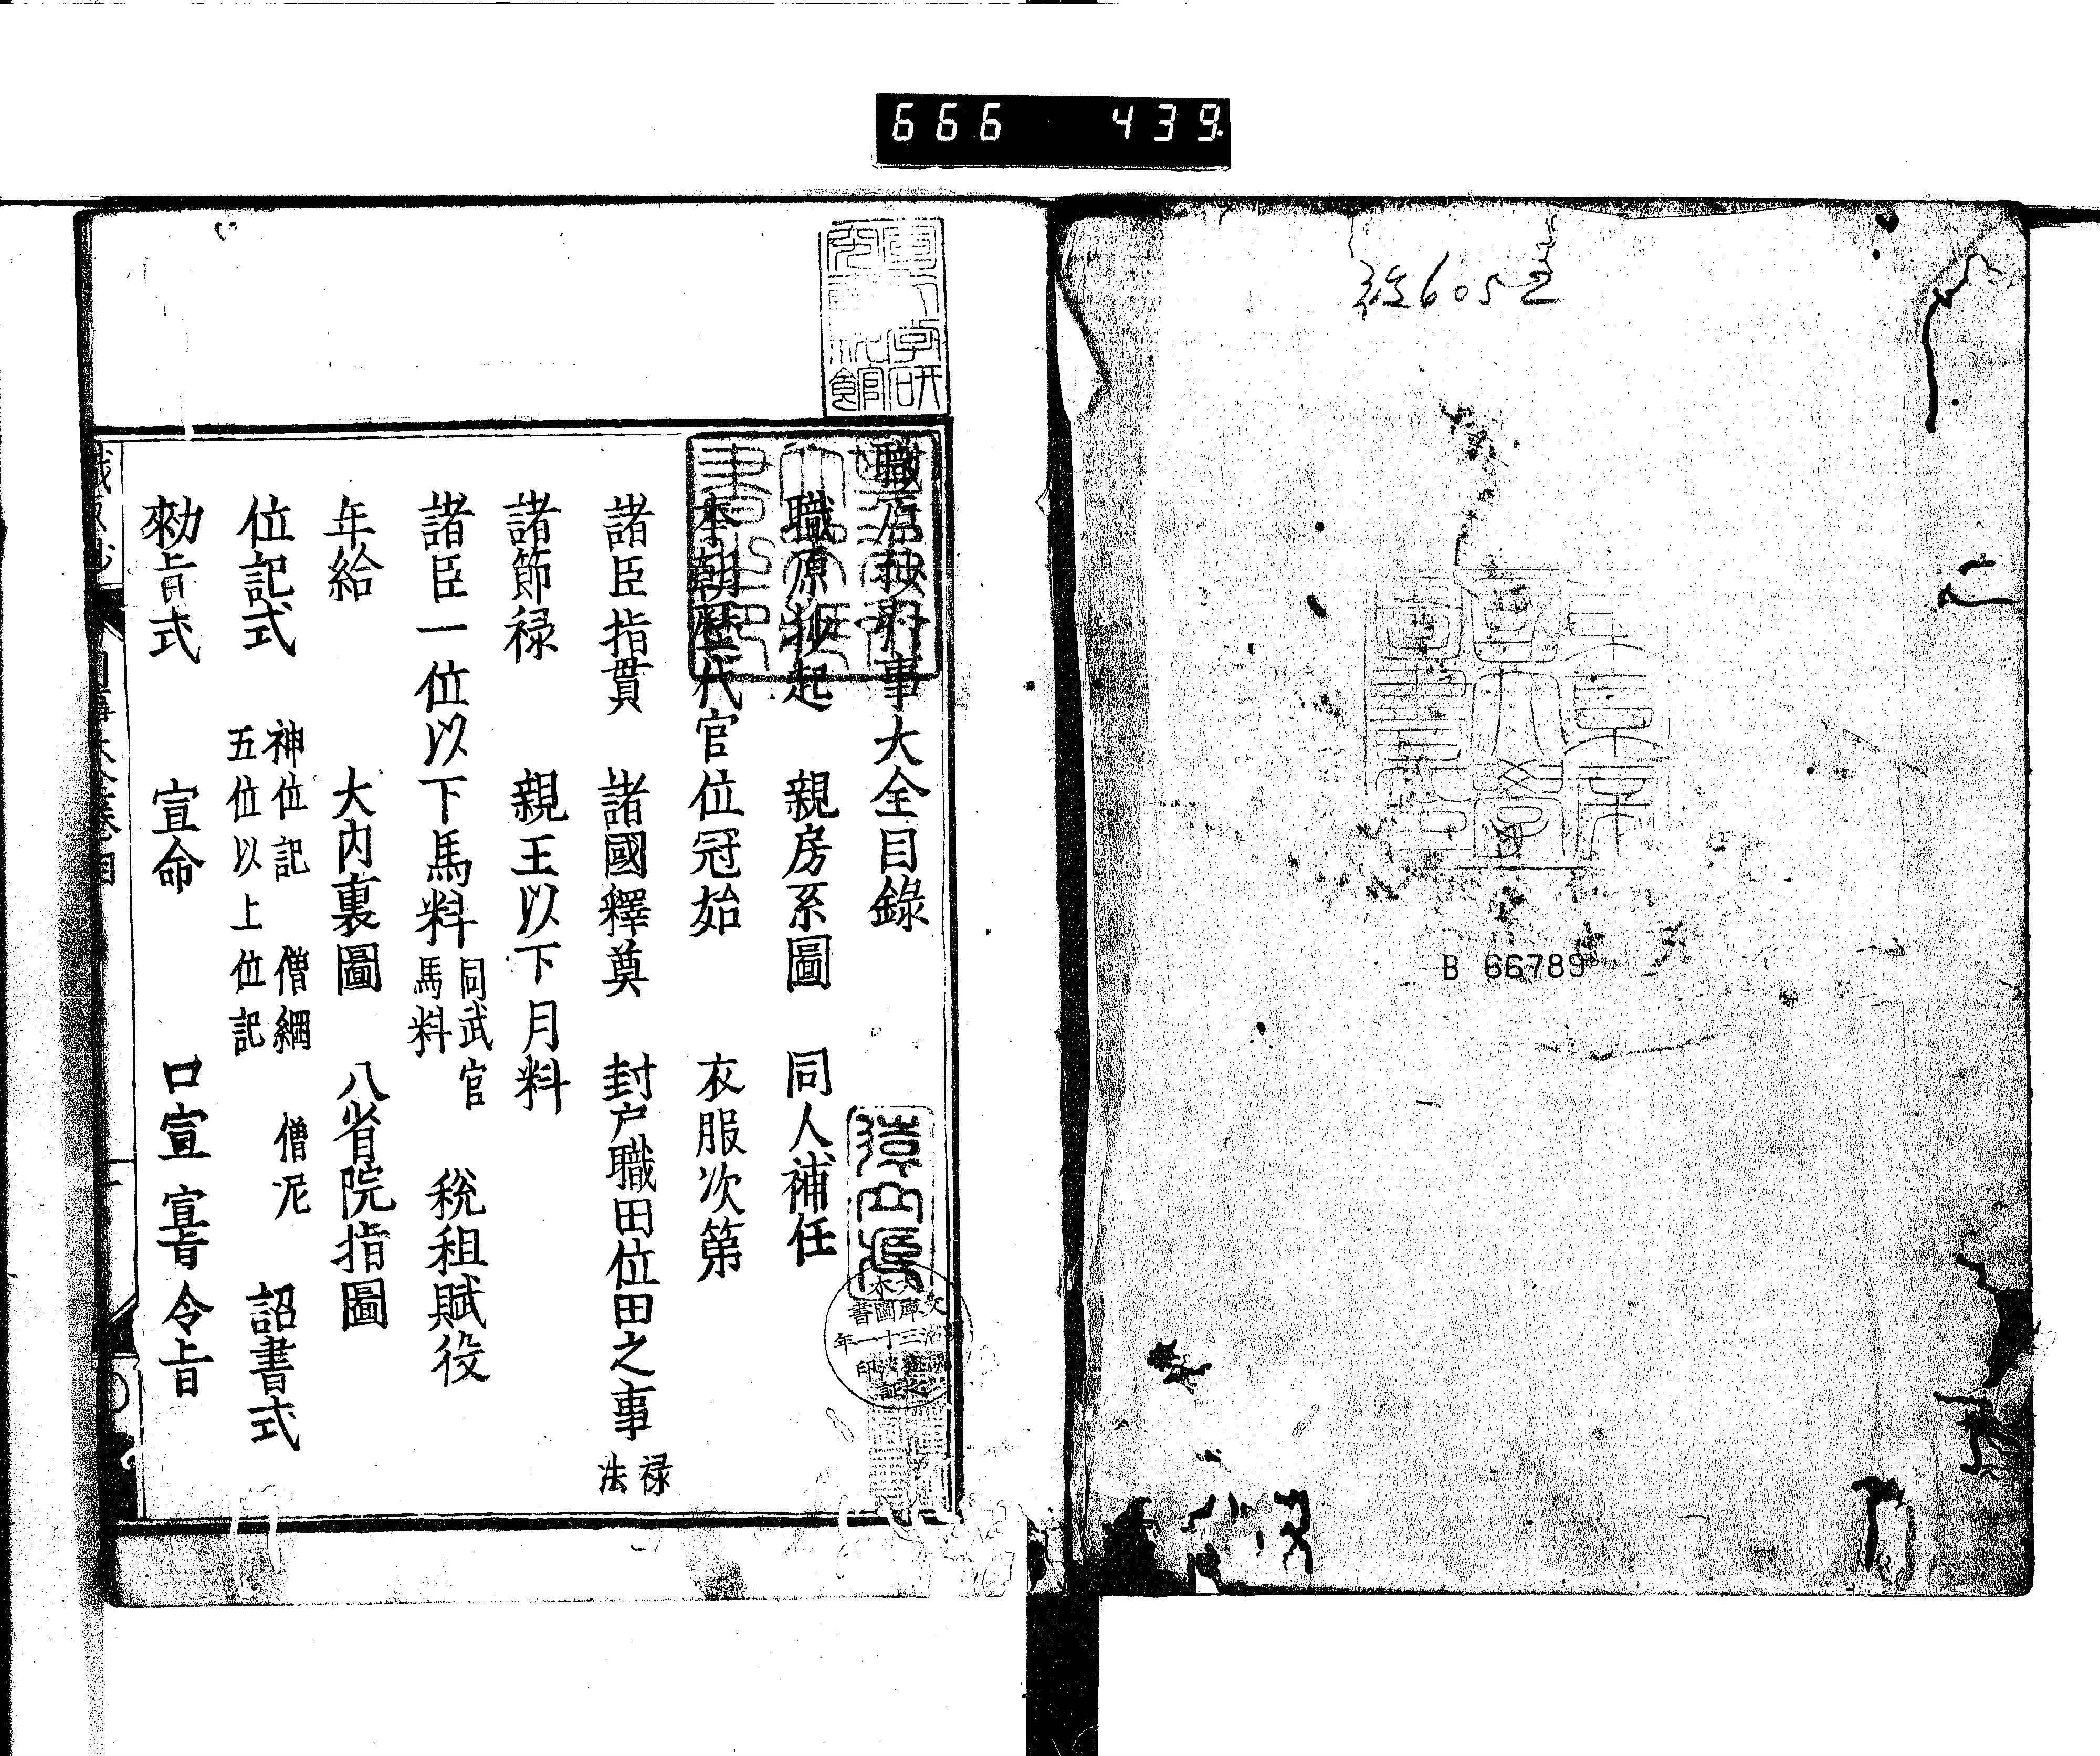 666 439
後6052
B 66789
東京帝國大學圖書印
職原抄別事大全目錄
職原抄起 親房系圖 同人補任
本朝歷代官位冠始 衣服次第
諸臣指貫 諸國釋奠 封戶職田位田之事 禄法
諸節禄 親王以下月料
諸臣一位以下馬料 同武官馬料 税租賦役
年給 大內裏圖 八省院指圖
位記式 神位記 僧綱 僧尼 五位以上位記 詔書式
勅旨式 宣命 口宣 宣旨 令旨